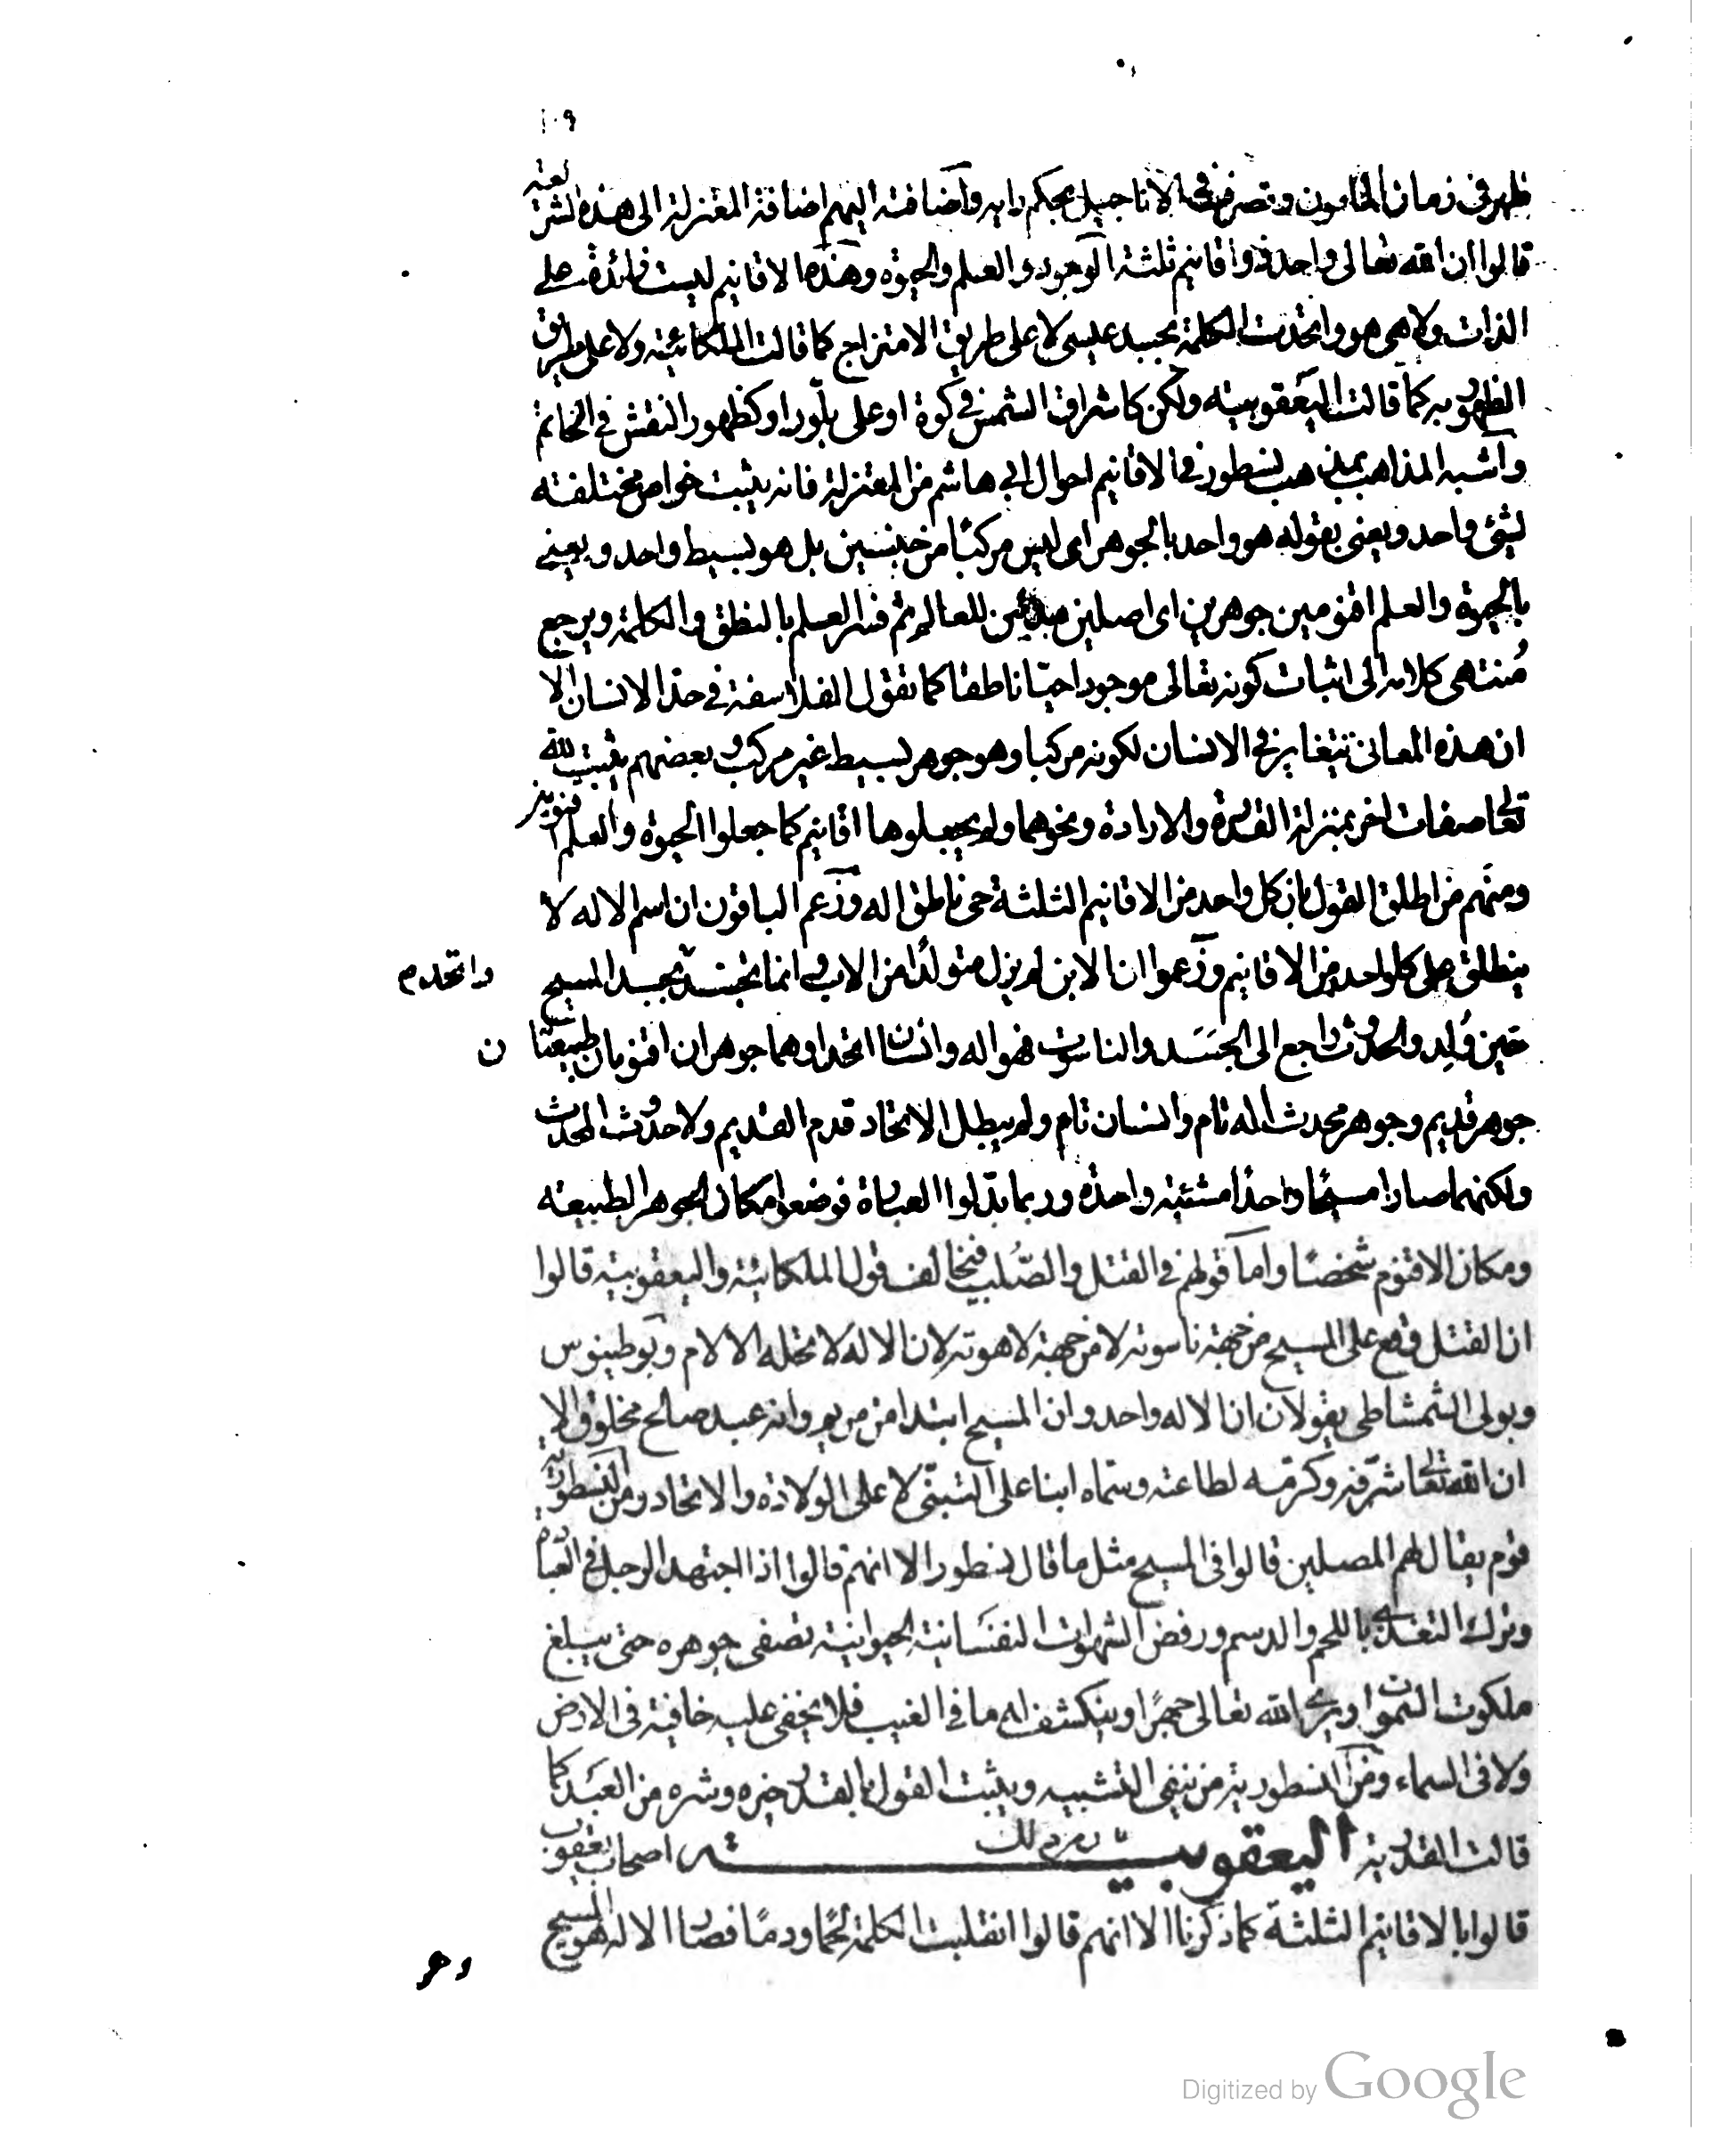 ١٠٩
ظهر في زمان المامون وتصرف في الاناجيل بحكم رايه واضافته اليهم اضافة المعتزلة الى هذه الشريعة
قالوا ان الله تعالى واحد ذو اقانيم ثلثة الوجود والعلم والحيوة وهذه الاقانيم ليست زائدة على
الذات ولا هي هو واتحدت الكلمة بجسد عيسى لا على طريق الامتزاج كما قالت الملكائية ولا على طريق
الظهور به كما قالت اليعقوبية ولكن كاشراق الشمس في كوة او على بلور او كظهور النقش في الخاتم
واشبه المذاهب بمذهب نسطور في الاقانيم احوال ابي هاشم من المعتزلة فانه يثبت خواص مختلفة
لشئ واحد ويعنى بقوله هو واحد بالجوهر اى ليس مركبًا من جنسين بل هو بسيط واحد ويعنى
بالحيوة والعلم اقنومين جوهرين اى اصلين مبدئين للعالم ثم فسر العلم بالنطق والكلمة ويرجع
مُنتهى كلامه الى اثبات كونه تعالى موجودا حيّا ناطقا كما تقول الفلاسفة في حدّ الانسان الا
ان هذه المعاني تتغاير في الانسان لكونه مركبا وهو جوهر بسيط غير مركب وبعضهم يثبت لله
تعالى صفات اخر بمنزلة القدرة والارادة ونحوهما ولم يجعلوها اقانيم كما جعلوا الحيوة والعلم اقنومين
ومنهم من اطلق القول بان كل واحد من الاقانيم الثلثة حي ناطق اله وزعم الباقون ان اسم الاله لا
ينطلق على كل واحد من الاقانيم وزعموا ان الابن لم يزل متولدًا من الاب وانما تجسّد بجسد المسيح
واتحد م
حين وُلِد والحدوث راجع الى الجَسَد والناسوت فهو اله وانسان اتحدا وهما جوهران اقنومان طبيعتا
ن
جوهر قديم وجوهر محدث اله تام وانسان تام ولم يبطل الاتحاد قدم القديم ولا حدوث المحدث
ولكنهما صارا مسيحًا واحدًا مشئية واحدة وربما بدّلوا العبارة فوضعوا مكان الجوهر الطبيعة
ومكان الاقنوم شخصًا واما قولهم في القتل والصُلب فيخالف قول الملكائية واليعقوبية قالوا
ان القتل وقع على المسيح من جهة ناسوته لا من جهة لاهوته لان الاله لا تحله الالام وبوطينوس
وبولى الشمشاطى يقولان ان الاله واحد وان المسيح ابتدا من مريم وانه عبد صالح مخلوق الا
ان الله تعالى شرّفه وكرّمه لطاعته وسمّاه ابنا على التبنّى لا على الولادة والاتحاد ومن النسطورية
قوم يقال لهم المصلين قالوا في المسيح مثل ما قال نسطور الا انهم قالوا اذا اجتهد الرجل في العبادة
وترك التغذى باللحم والدسم ورفض الشهوات النفسَانية الحيوانية تصفى جوهره حتى يبلغ
ملكوت السموات ويرى الله تعالى جهرًا وينكشف له ما في الغيب فلا يخفى عليه خافية في الارض
ولا في السماء ومن النسطورية من ينفى التشبيه ويثبت القول بالقدر خيره وشره من العبَد كما
قالت القدرية اليعقوبيــــــة اصحاب يعقوب
قالوا بالاقانيم الثلثة كما ذكرنا الا انهم قالوا انقلبت الكلمة لحمًا ودمًا فصار الاله هو المسيح
وهو
Digitized by Google